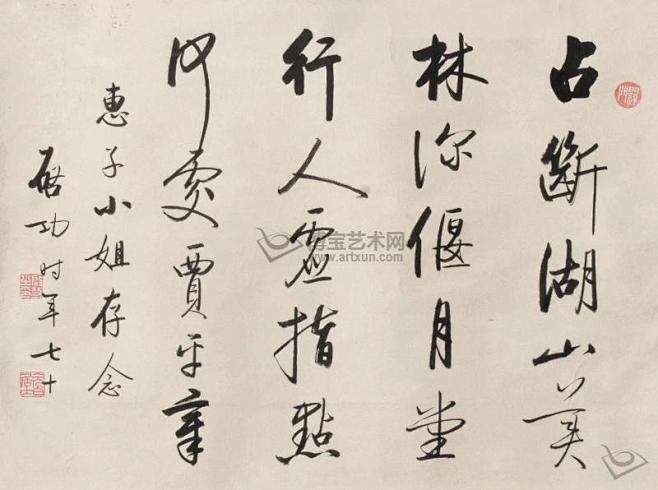 占斷湖山美
林深偃月堂
行人虛指點
何處賈平章
惠子小姐存念
啓功时年七十
博宝艺术网
www.artxun.com